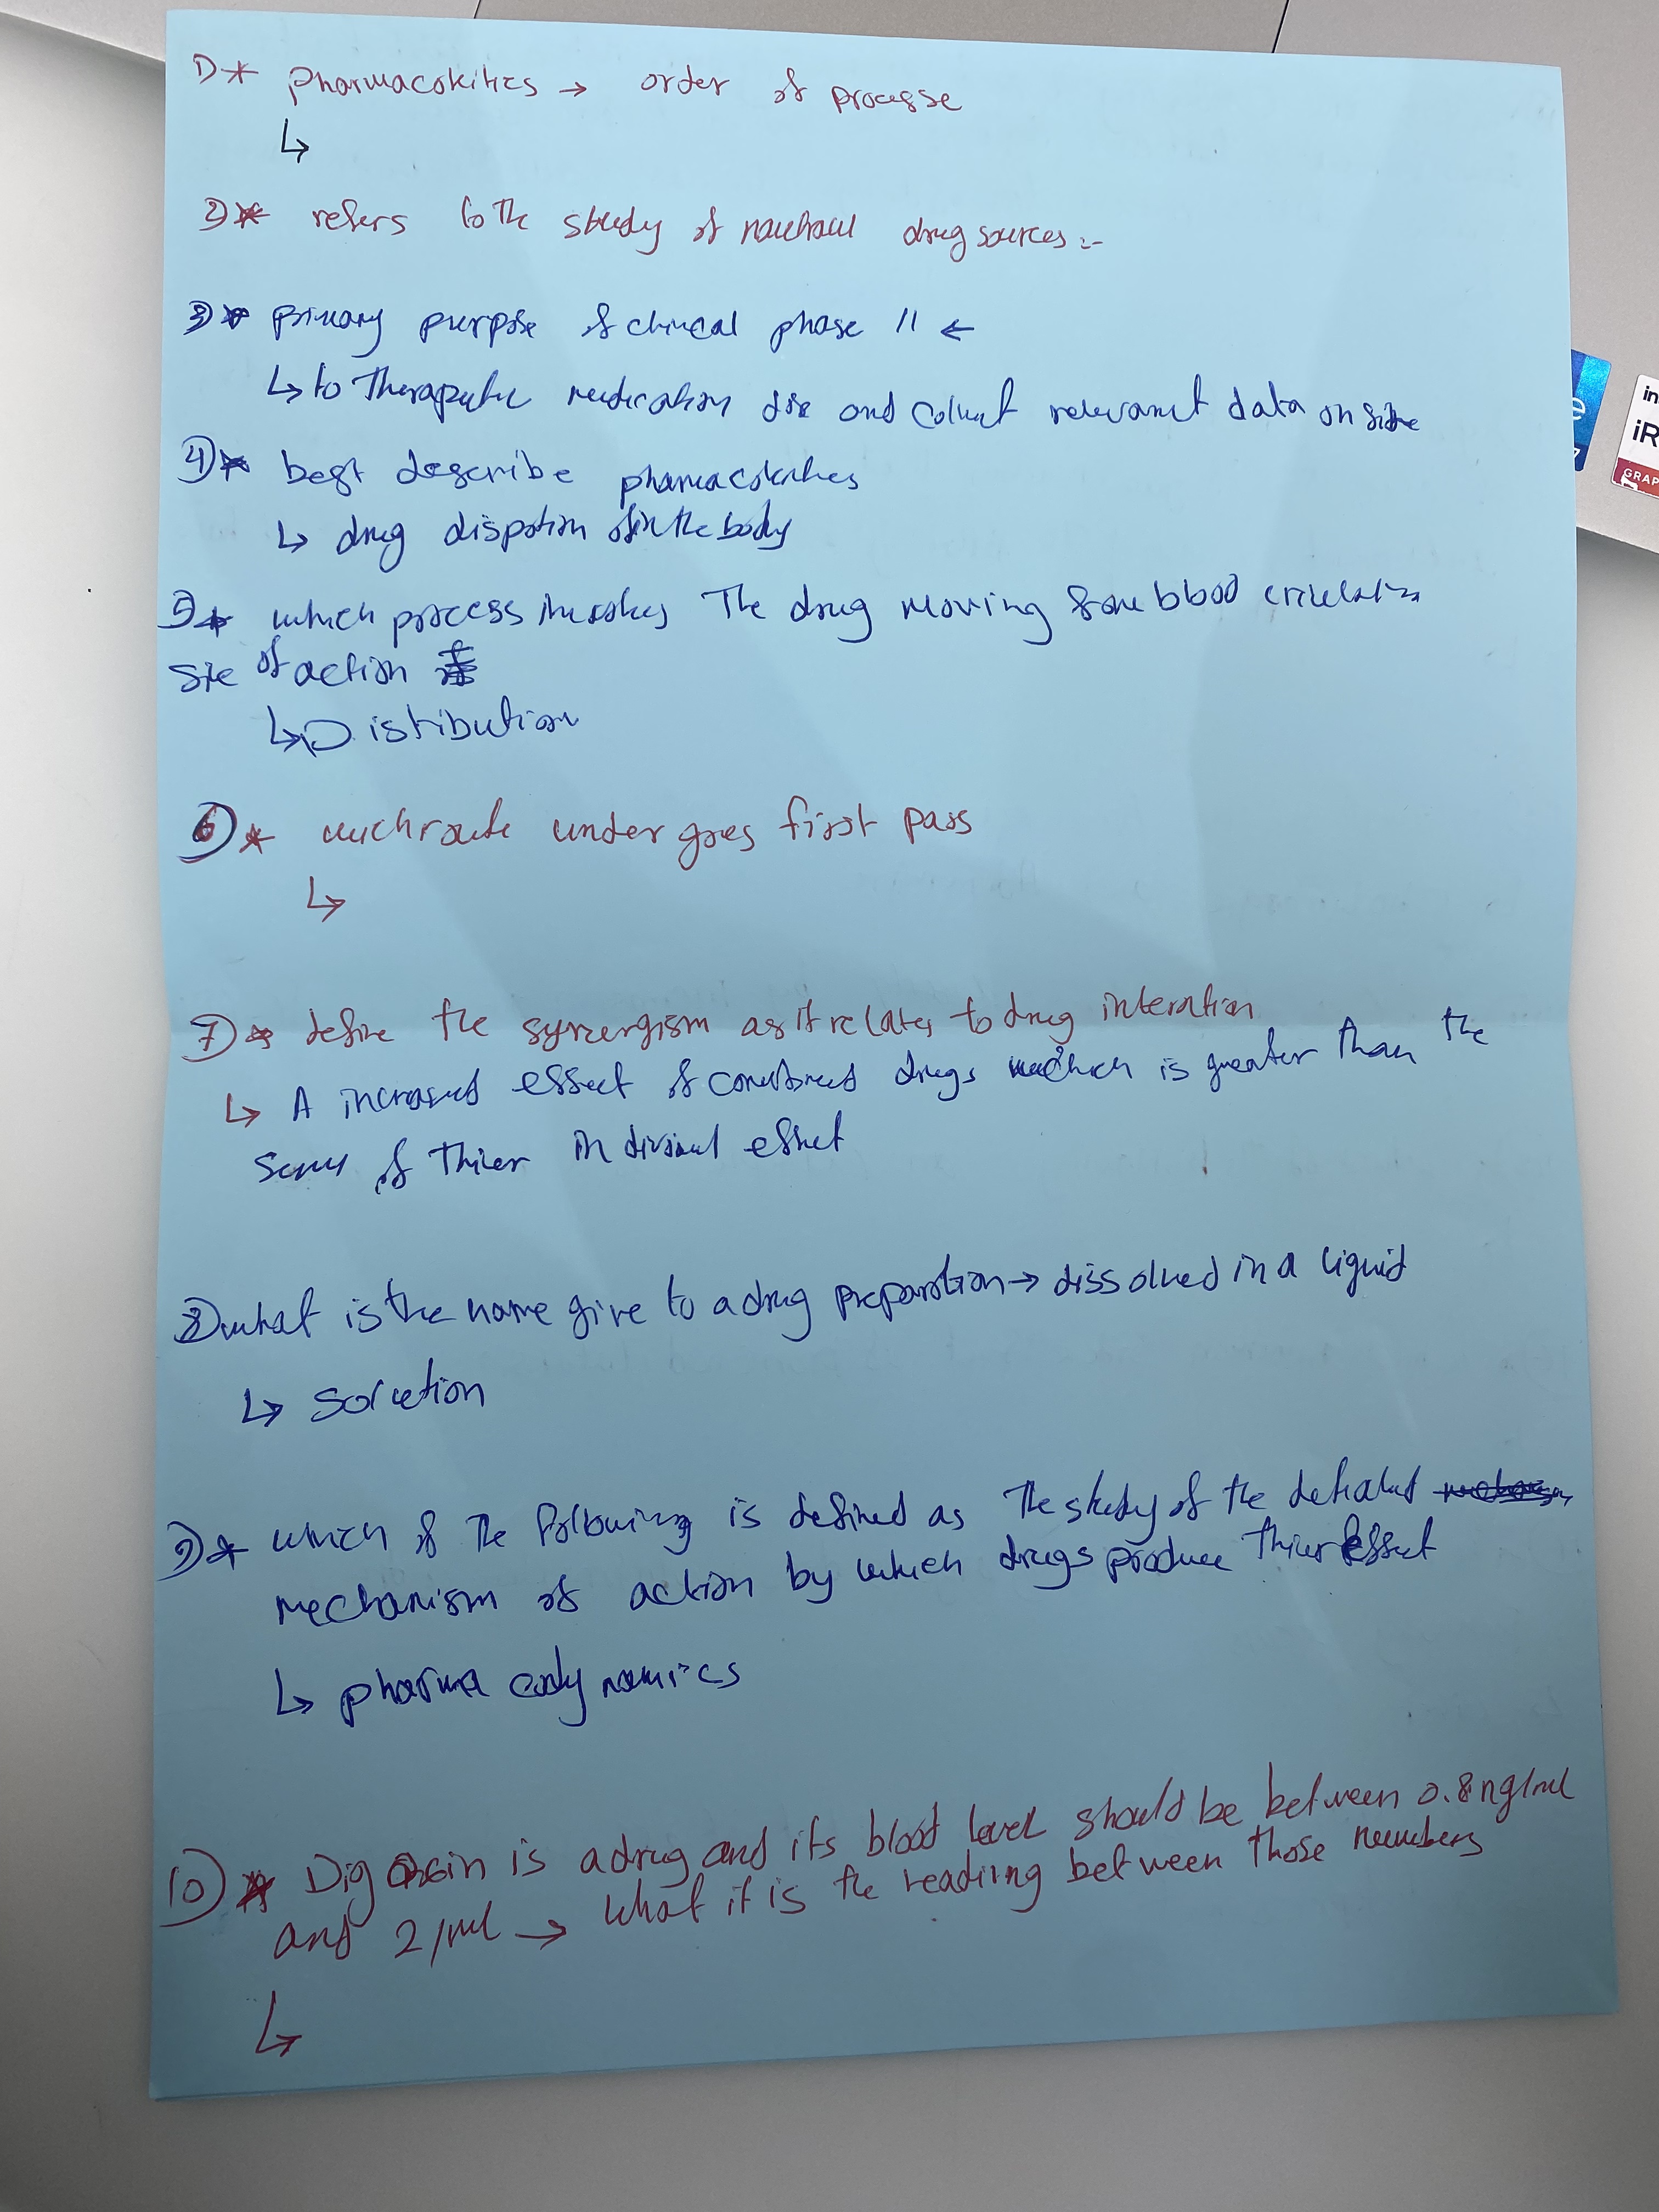 1)* pharmacokitics → order of processe
↳
2)* refers to the study of drug sources :-
3)* primary purpose of clinical phase 11 ←
↳ to Theraputic medication and relevant data on
4)* best describe
↳ drug dispotion in the body
5)* which process The drug moving blood
Site of action
↳ Distibution
6)* route undergoes first pass
↳
7)* define the synergism as it relates to drug interation
↳ A increased effect of combined drugs which is greater than the
sum of thier effect
8) what is the name give to a drug preparation → dissolved in a liquid
↳ solution
9)* which of the following is defined as The study of the
mechanism of action by which drugs produce thier Effect
↳ pharma codynamics
10)* Digoxin is a drug and its blood level should be between 0.8 ng/ml
and 2/ml → what if is the readiing between those numbers
↳
in
e
iR
7
GRAP